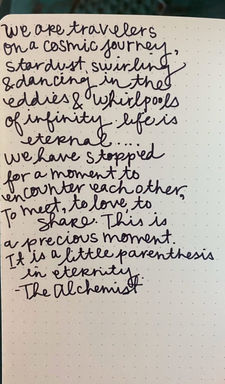 we are travelers
on a cosmic journey,
stardust, swirling
& dancing in the
eddies & whirlpools
of infinity. life is
eternal....
we have stopped
for a moment to
encounter each other,
To meet, to love, to
share. This is
a precious moment.
It is a little parenthesis
in eternity.
-The Alchemist